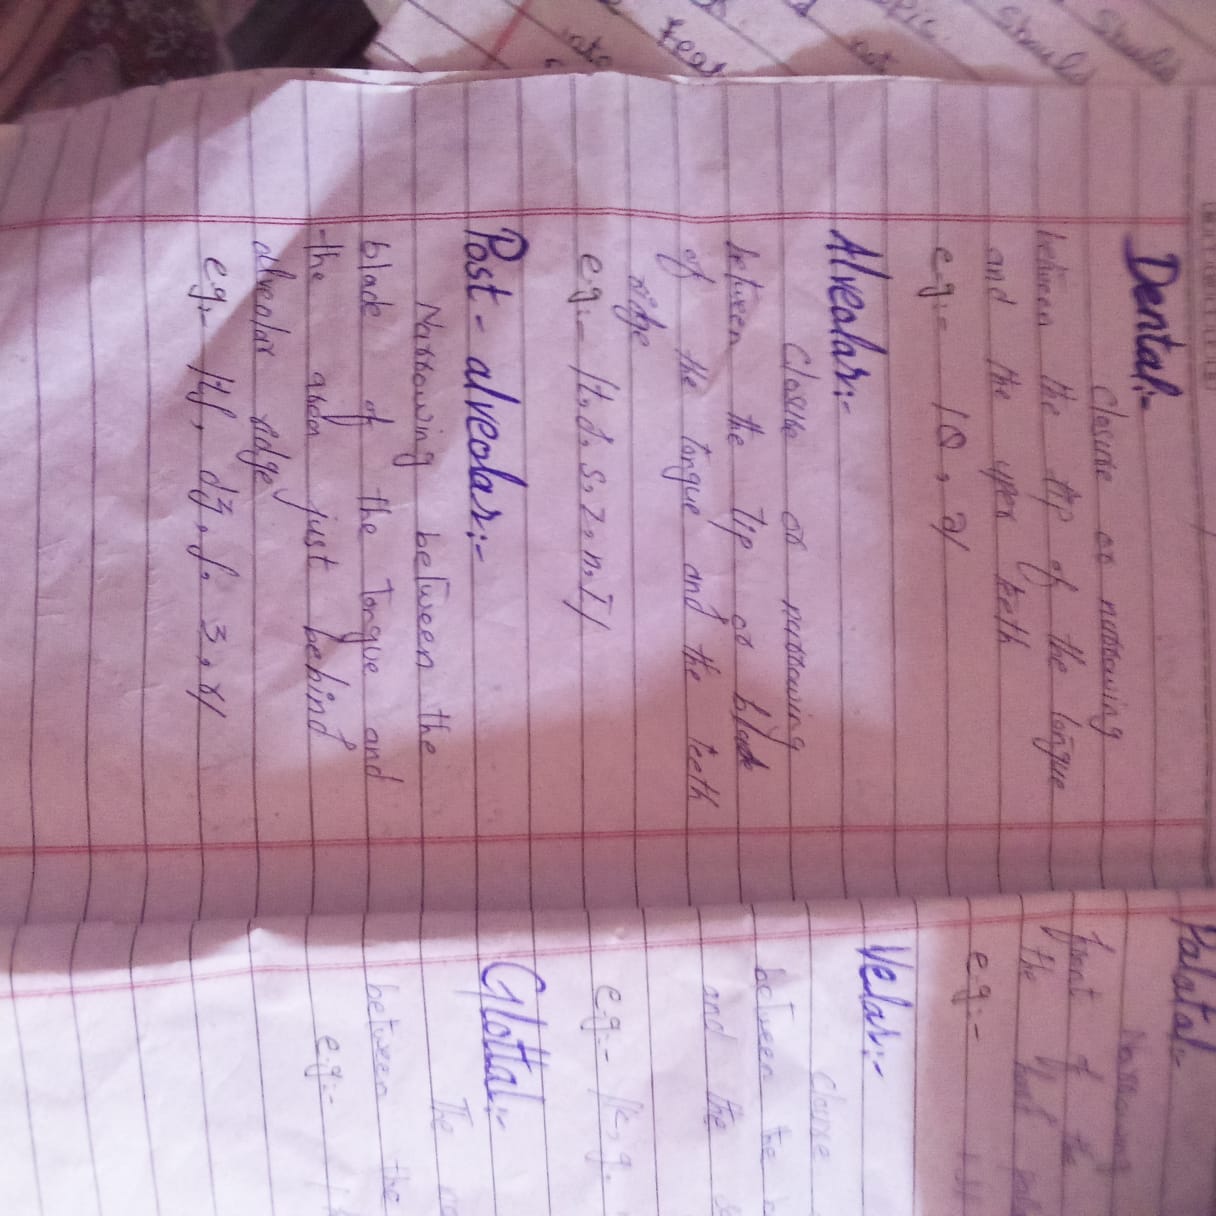 Dental:-
Closure or narrowing
between the tip of the tongue
and the uper teeth
e.g:- /θ, ∂/
Alveolar:-
Closure or narrowing
between the tip or blade
of the tongue and the teeth
ridge
e.g:- /t, d, s, z, n, l/
Post-alveolar:-
Narrowing between the
blade of the tongue and
the just behind
alveolar ridge
e.g:- /tʃ, dʒ, ʃ, ʒ, r/
Palatal:-
Narrowing
front of the
the hard
e.g:-
Velar:-
Closure
between the
and the
e.g:- /k, g,
Glottal:-
The
between the
e.g:- /
should
should
not